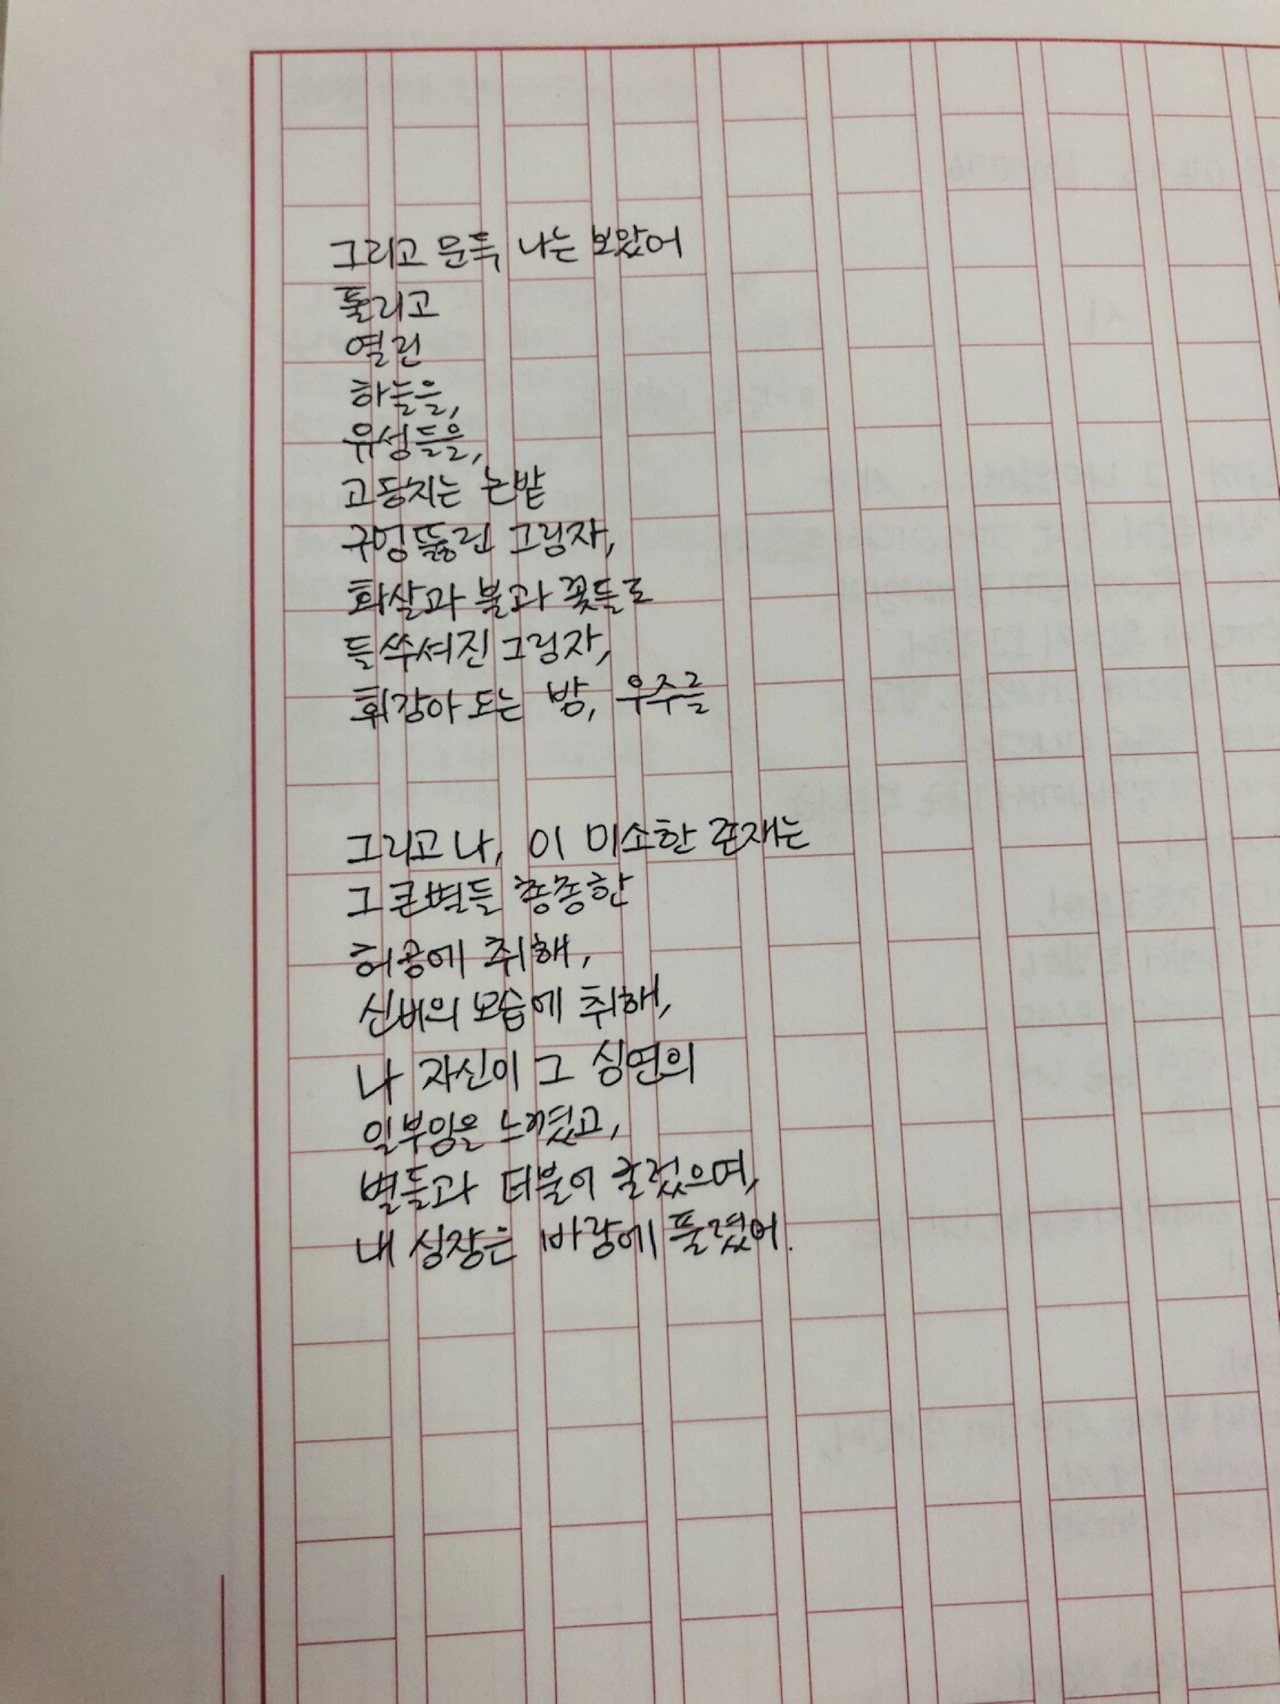 그리고 문득 나는 보았어
풀리고
열린
하늘을,
유성들을,
고동치는 논밭
구멍뚫린 그림자,
화살과 불과 꽃들로
들쑤셔진 그림자,
휘감아 도는 밤, 우주를
그리고 나, 이 미소한 존재는
그 큰 별들 총총한
허공에 취해,
신비의 모습에 취해,
나 자신이 그 심연의
일부임을 느꼈고,
별들과 더불어 굴렀으며,
내 심장은 바람에 풀렸어.